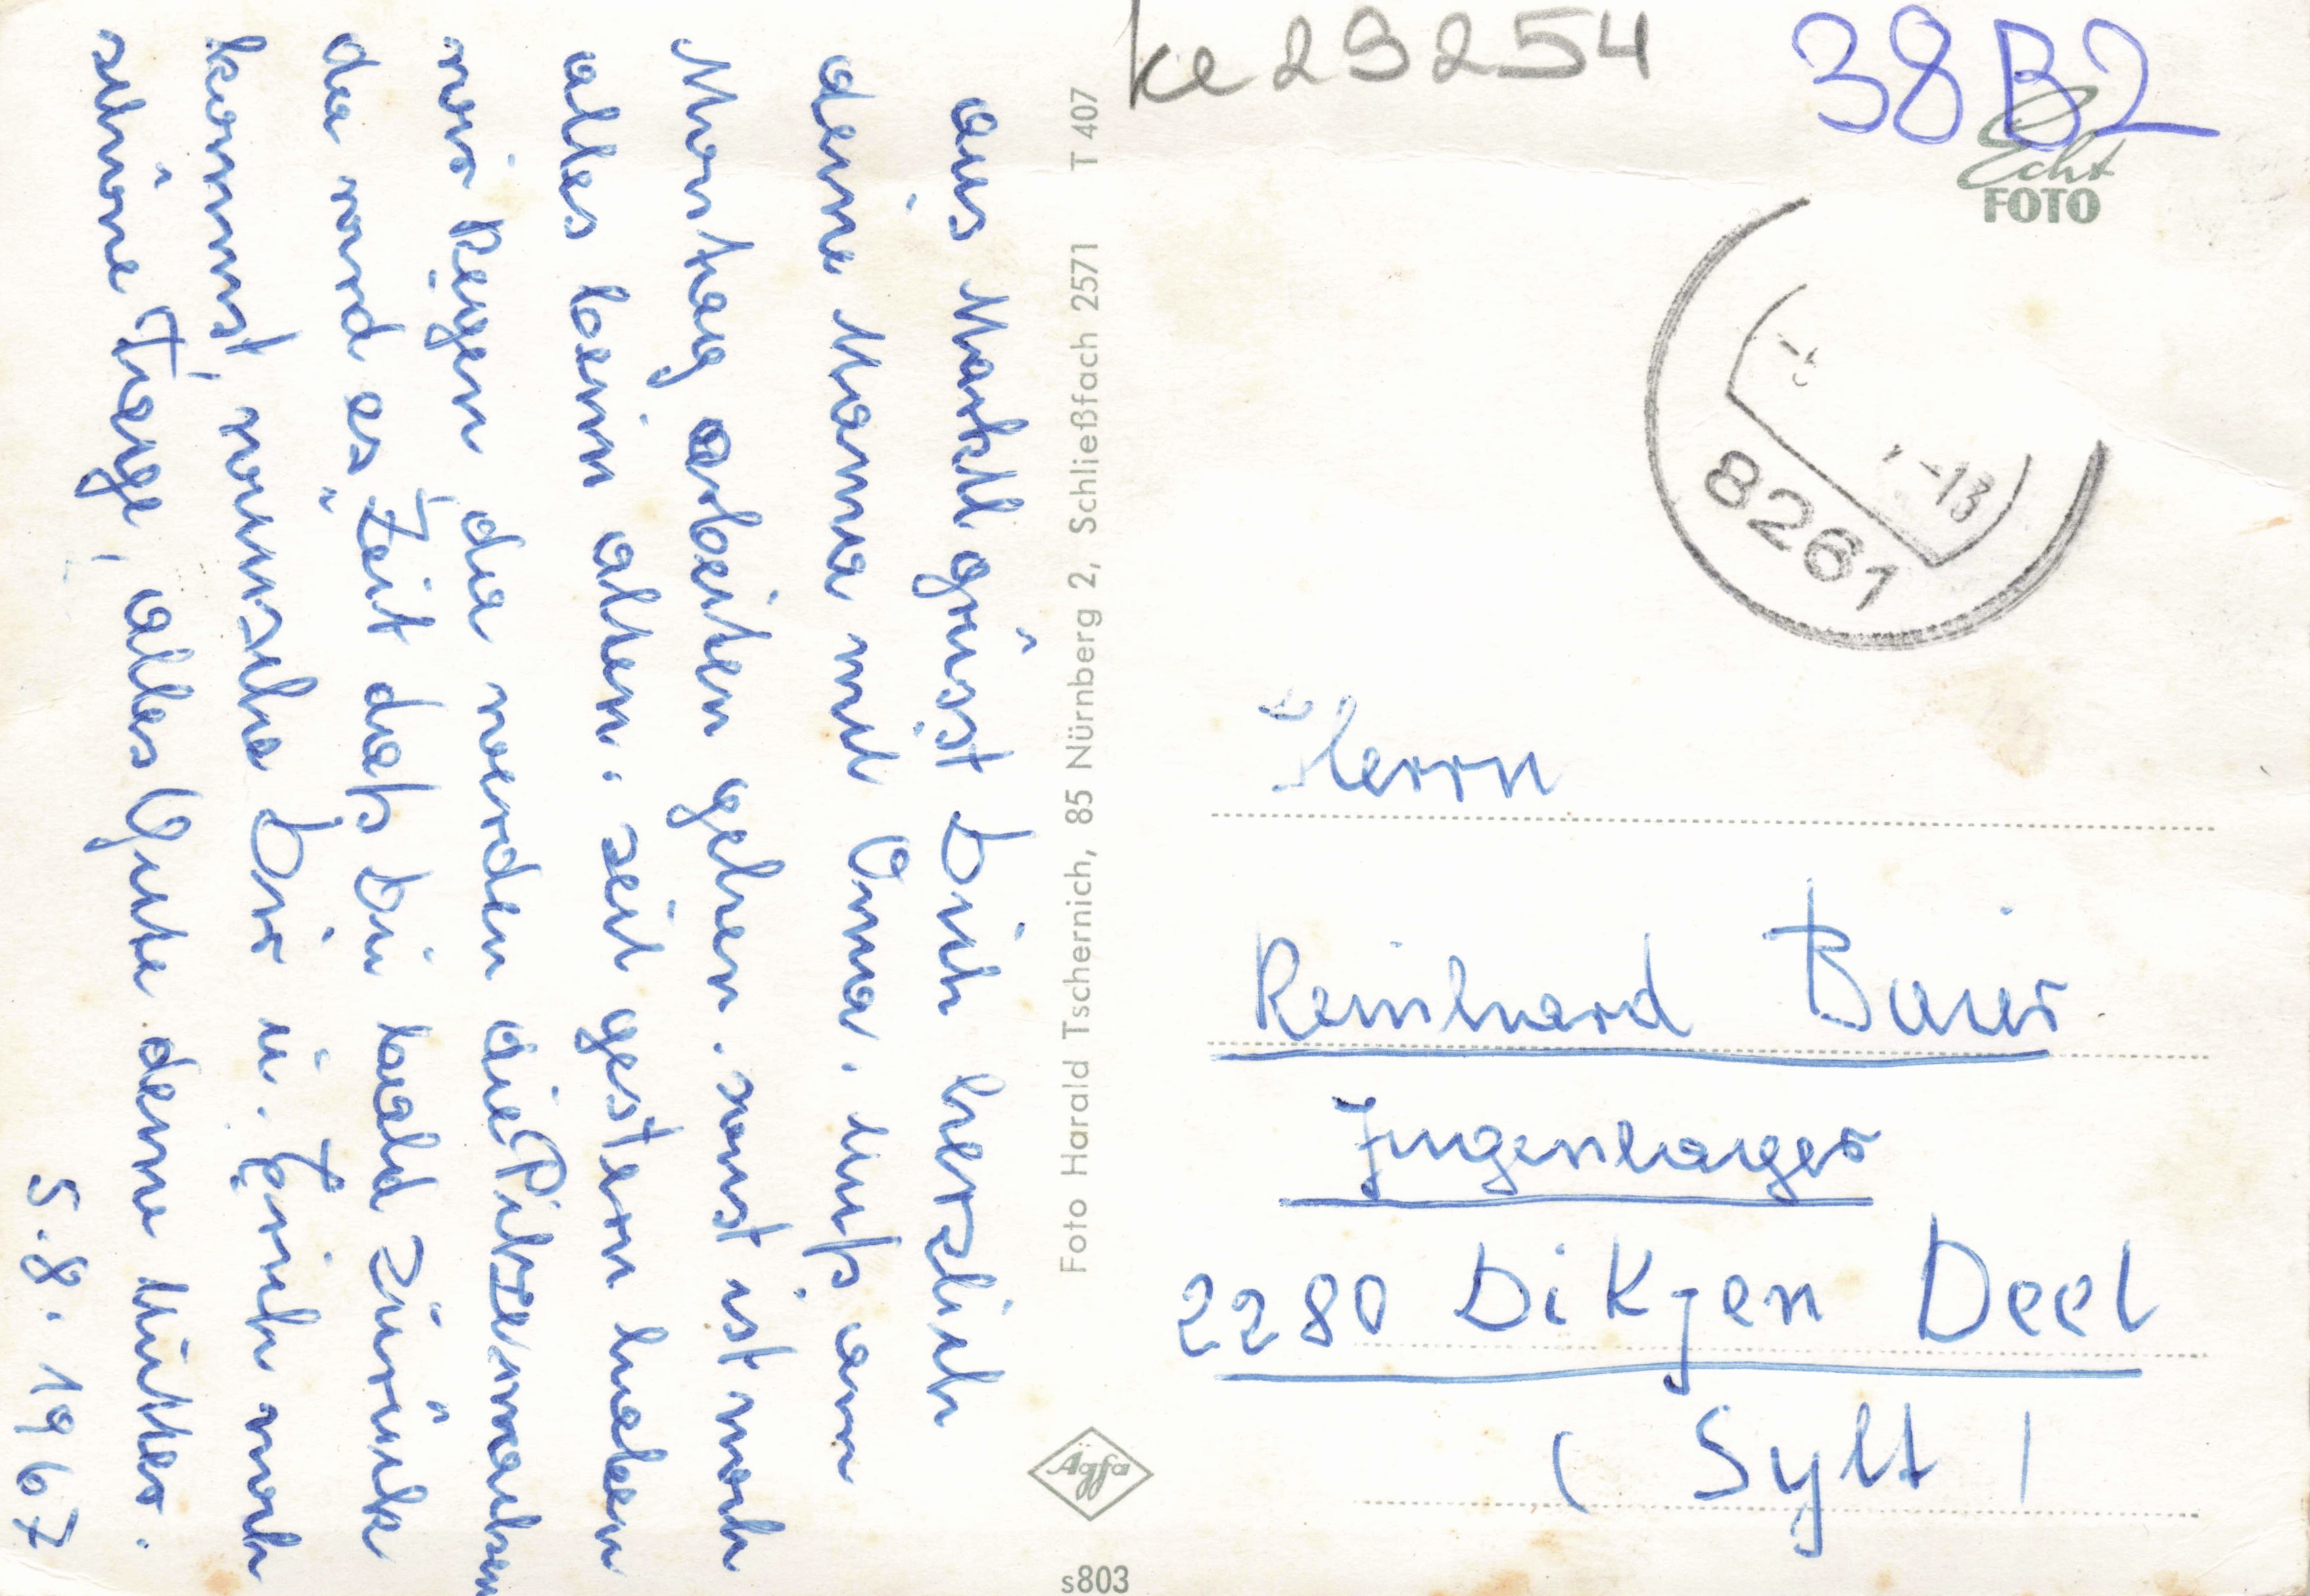 aus Marktl grüsst Dich herzlich
deine Mama mit Oma. Muß am
Montag arbeiten gehen. sonst ist noch
alles beim alten. seit gestern haben
wir Regen da werden die Pilze wachsen
da wird es Zeit daß Du bald zurück
kommst, wünsche Dir u. Erich noch
schöne Tage, alles Gute deine Mutter.
5.8.1967
Foto Harald Tschernich, 85 Nürnberg 2, Schließfach 2571 T 407
Agfa
s803
ke 29254
38 B2
Echt
FOTO
-13
8261
Herrn
Reinhard Baier
Jugenlager
2280 Dikjen Deel
( Sylt )